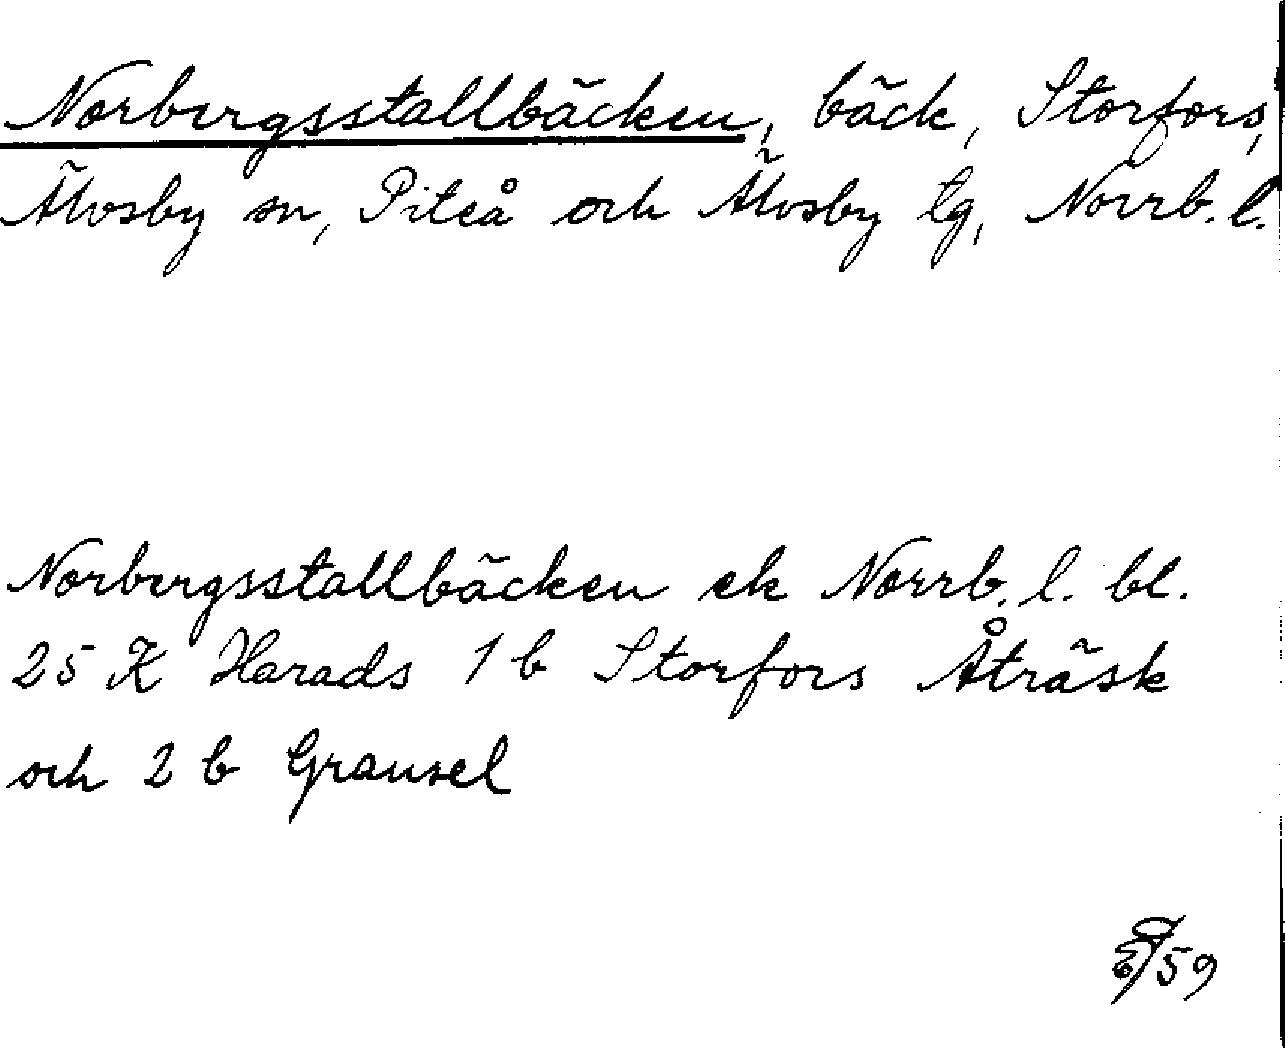 Norbergsstallbäcken, bäck, Storfors,
Älvsby sn, Piteå och Älvsby tg, Norrb. l.
Norbergsstallbäcken ek Norrb. l. bl.
25 K Harads 1 b Storfors Åträsk
och 2 b Gransel
59